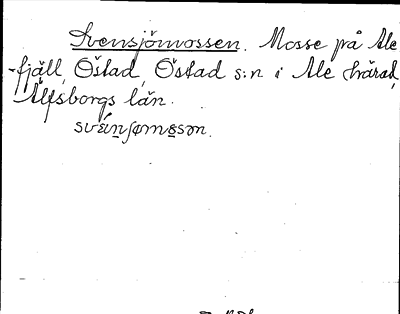 Svensjömossen. Mosse på Ale
-fjäll, Östad, Östad s:n i Ale härad,
Älfsborgs län.